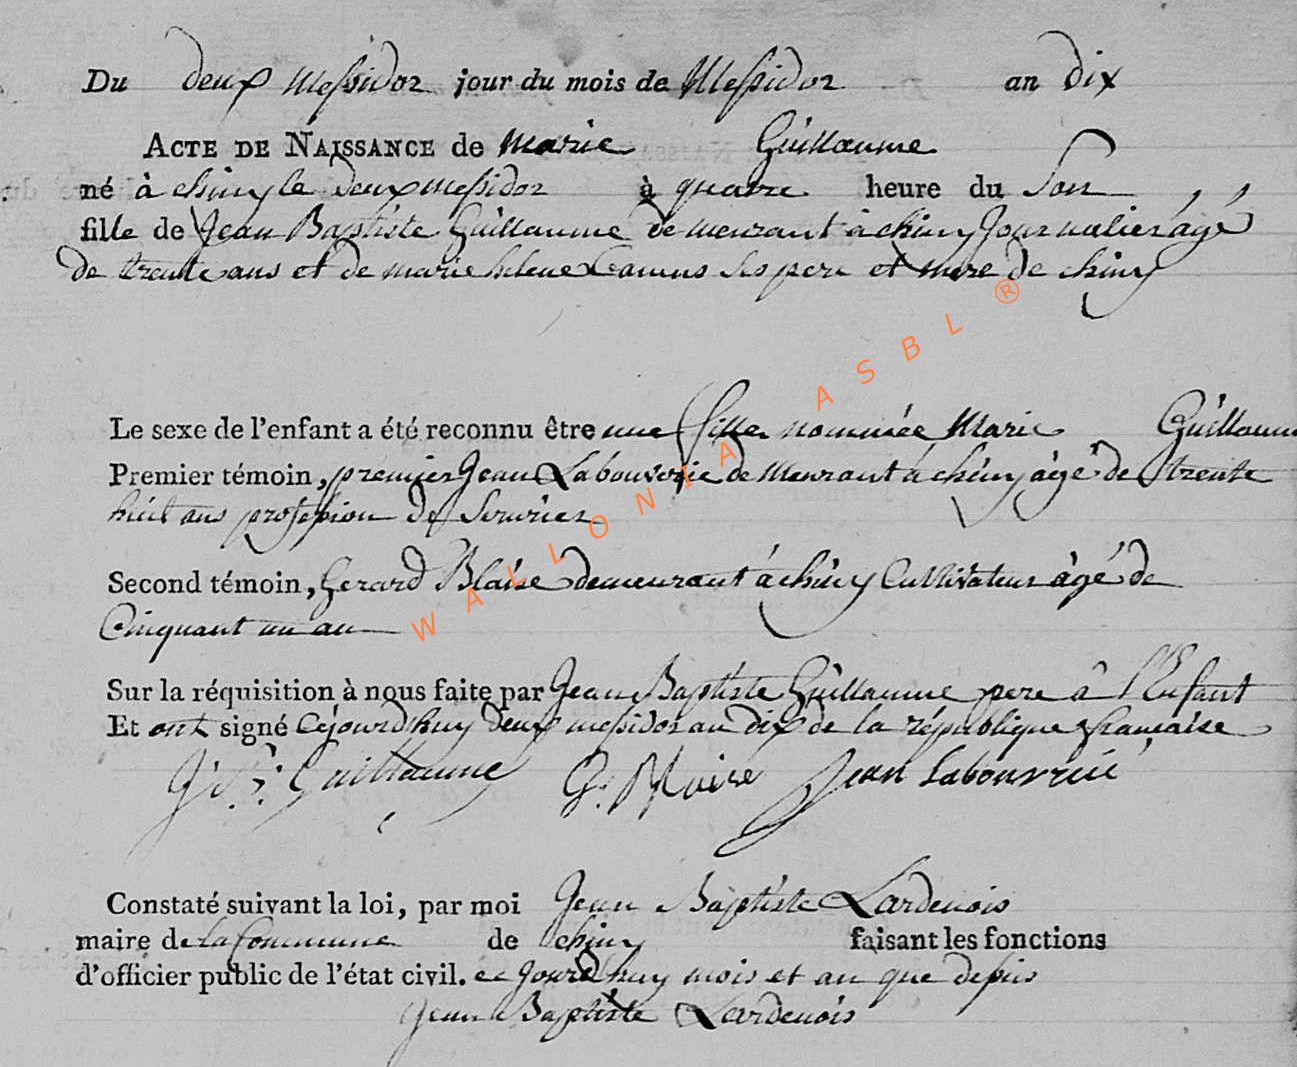 Du deux Messidor jour du mois de Messidor an dix
ACTE DE NAISSANCE de marie Guillaume
né à chiny le deux messidor à quatre heure du Soir
fille de Jean Baptiste Guillaume demeurant à chiny Journalier âgé
de trente ans et de marie helene Camus ses pere et mere de chiny
Le sexe de l'enfant a été reconnu être une fille nommée Marie Guillaume
Premier témoin, premier Jean Labouverie demeurant à chiny âgé de trente
huit ans profession de
Second témoin, Gerard Blaise demeurant à chiny Cultivateur âgé de
Cinquant un an
Sur la réquisition à nous faite par Jean Baptiste Guillaume pere à l'Enfant
Et ont signé Cejourdhuy deux messidor an dix de la république francaise
J. B. Guillaume G. Blaise Jean Labouverie
Constaté suivant la loi, par moi Jean Baptiste Lardenois
maire de la Commune de chiny faisant les fonctions
d'officier public de l'état civil. ce Jourdhuy mois et an que depuis
Jean Baptiste Lardenois
WALLONIA ASBL ®